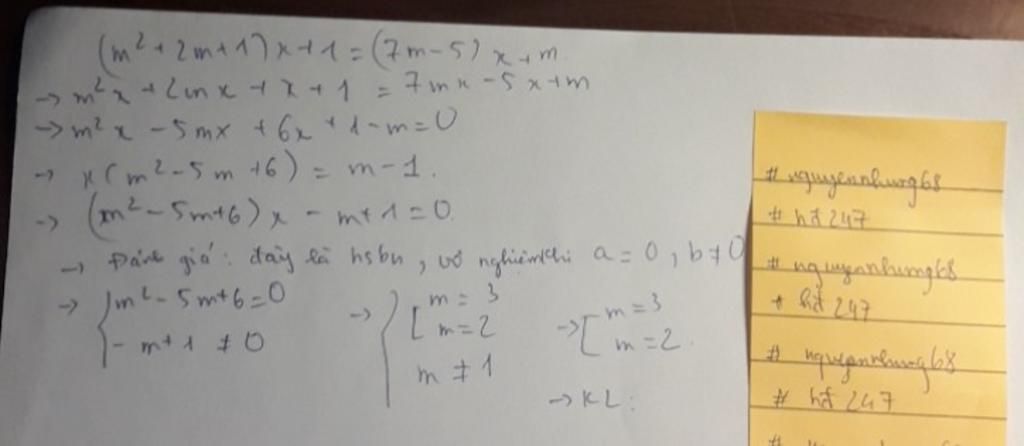 (m² + 2m + 1)x + 1 = (7m - 5)x + m
→ m²x + 2mx + x + 1 = 7mx - 5x + m
→ m²x - 5mx + 6x + 1 - m = 0
→ x(m² - 5m + 6) = m - 1.
→ (m² - 5m + 6)x - m + 1 = 0.
→ Đánh giá: đây là hsbn, vô nghiệm khi a = 0, b ≠ 0
→ { m² - 5m + 6 = 0 → { [ m = 3 → [ m = 3
- m + 1 ≠ 0 m = 2 m = 2.
m ≠ 1
→ KL:
# nguyennhung68
# hđ 247
# nguyennhung68
+ hđ 247
# nguyennhung68
# hđ 247